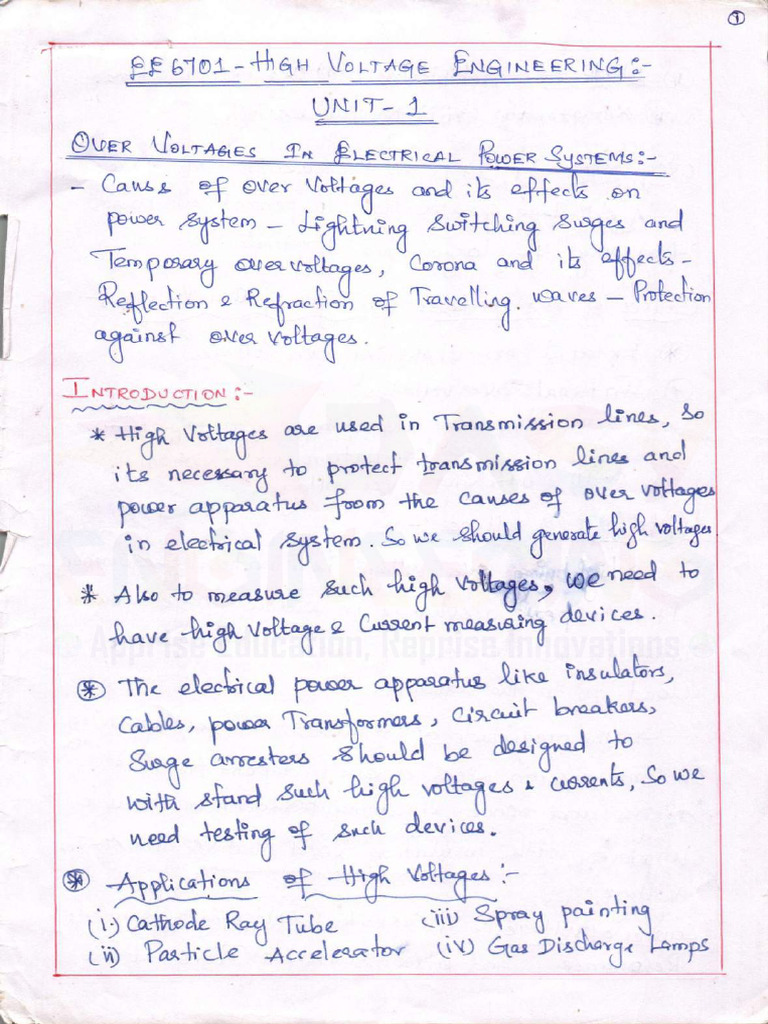 1
EE6701 - HIGH VOLTAGE ENGINEERING:-
UNIT-1
OVER VOLTAGES IN ELECTRICAL POWER SYSTEMS:-
- Causs of over voltages and its effects on
power system - Lightning switching surges and
Temporary overvoltages, Corona and its effects -
Reflection & Refraction of Travelling waves - Protection
against over voltages.
INTRODUCTION:-
* High Voltages are used in Transmission lines, so
its necessary to protect transmission lines and
power apparatus from the causes of over voltages
in electrical system. So we should generate high voltages
* Also to measure such high voltages, we need to
have high Voltage & Current measuring devices.
Apprise Education, Reprise Innovations
* The electrical power apparatus like insulators,
cables, power Transformers, circuit breakers,
Surge arresters should be designed to
with stand such high voltages & currents, So we
need testing of such devices.
* Applications of High Voltages:-
(i) Cathode Ray Tube (iii) Spray painting
(ii) Particle Accelerator (iv) Gas Discharge Lamps